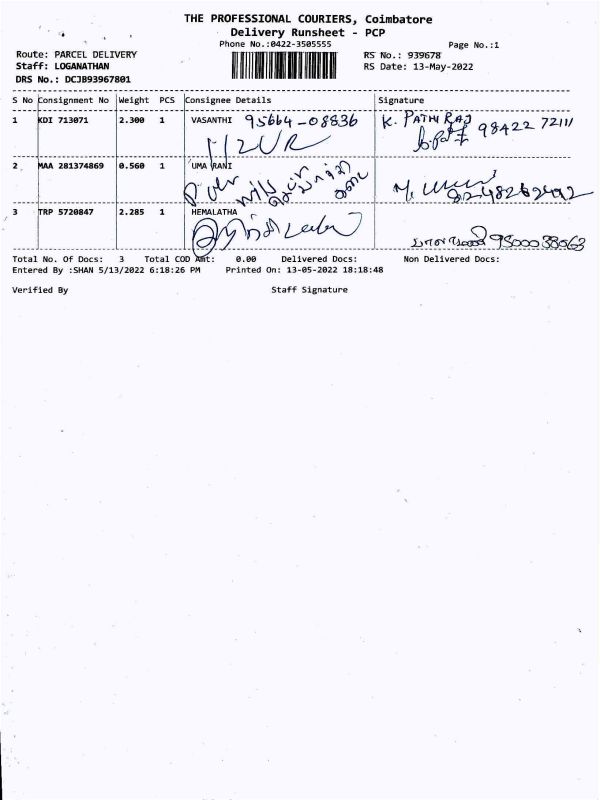 THE PROFESSIONAL COURIERS, Coimbatore
Delivery Runsheet - PCP
Phone No.:0422-3505555
Page No.:1
Route: PARCEL DELIVERY
RS No.: 939678
Staff: LOGANATHAN
RS Date: 13-May-2022
DRS No.: DCJB93967801
S No Consignment No Weight PCS Consignee Details Signature
1 KDI 713071 2.300 1 VASANTHI 95664-08836 K. PATHI RAJ
98422 72111
2 MAA 281374869 0.560 1 UMA RANI
3 TRP 5720847 2.285 1 HEMALATHA
9500038063
Total No. Of Docs: 3 Total COD Amt: 0.00 Delivered Docs: Non Delivered Docs:
Entered By :SHAN 5/13/2022 6:18:26 PM Printed On: 13-05-2022 18:18:48
Verified By Staff Signature